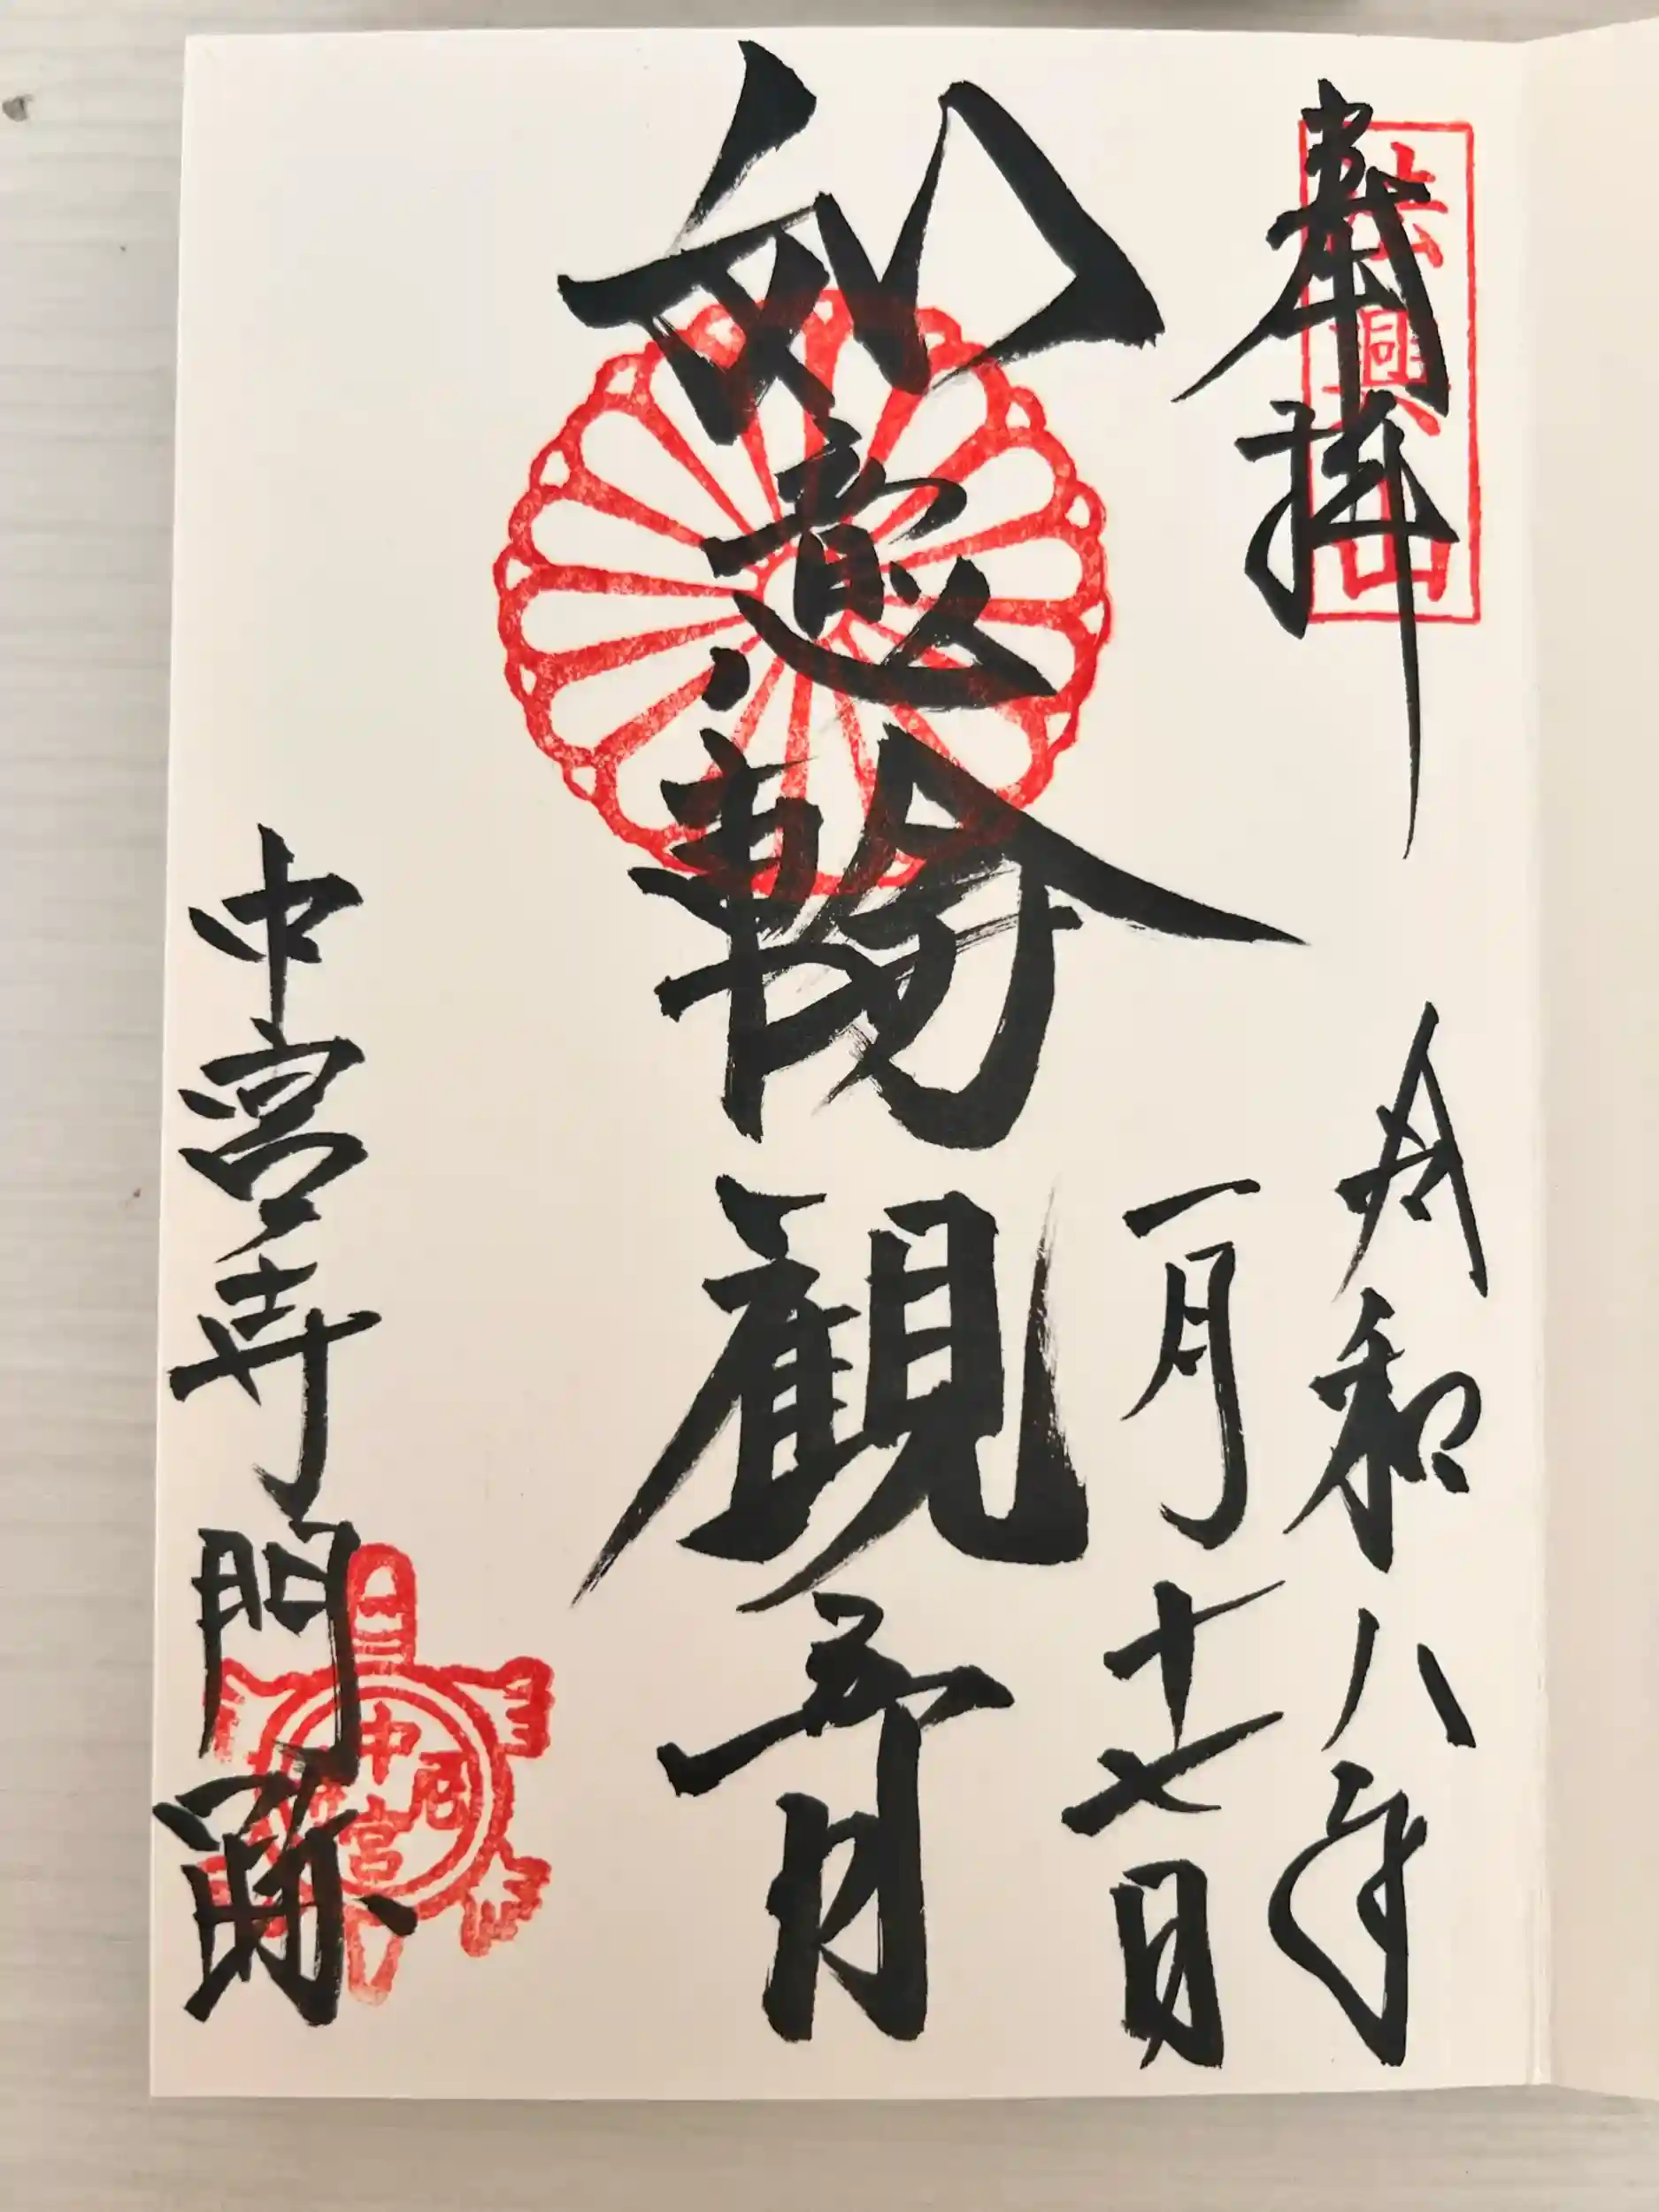 奉拝
法興山
令和八年
一月十七日
如意輪観音
中宮寺門跡
中宮